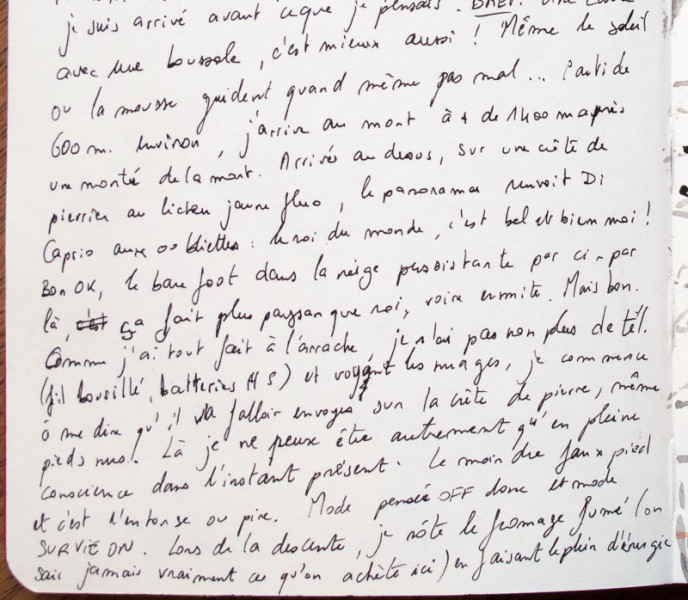 je suis arrivé avant ce que je pensais. BREF. Une
avec une boussole, c'est mieux aussi ! Même le soleil
ou la mousse guident quand même pas mal... Parti de
600 m. environ, j'arrive au mont à + de 1400 m après
une monté de la mort. Arrivés au dessus, sur une crête de
pierrier au lichen jaune fluo, le panorama renvoit Di
Caprio aux oubliettes : le roi du monde, c'est bel et bien moi !
Bon OK, le bare foot dans la neige persistante par ci - par
là, ça fait plus paysan que roi, voire ermite. Mais bon.
Comme j'ai tout fait à l'arrache, je n'ai pas non plus de tél.
(fil bousillé, batteries HS) et voyant les nuages, je commence
à me dire qu'il va falloir envoyer sur la crête de pierre, même
pieds nus. Là je ne peux être autrement qu'en pleine
conscience dans l'instant présent. Le moindre faux pied
et c'est l'entorse ou pire. Mode pensée OFF donc et mode
SURVIE ON. Lors de la descente, je rôte le fromage fumé (on
sais jamais vraiment ce qu'on achète ici) en faisant le plein d'énergie